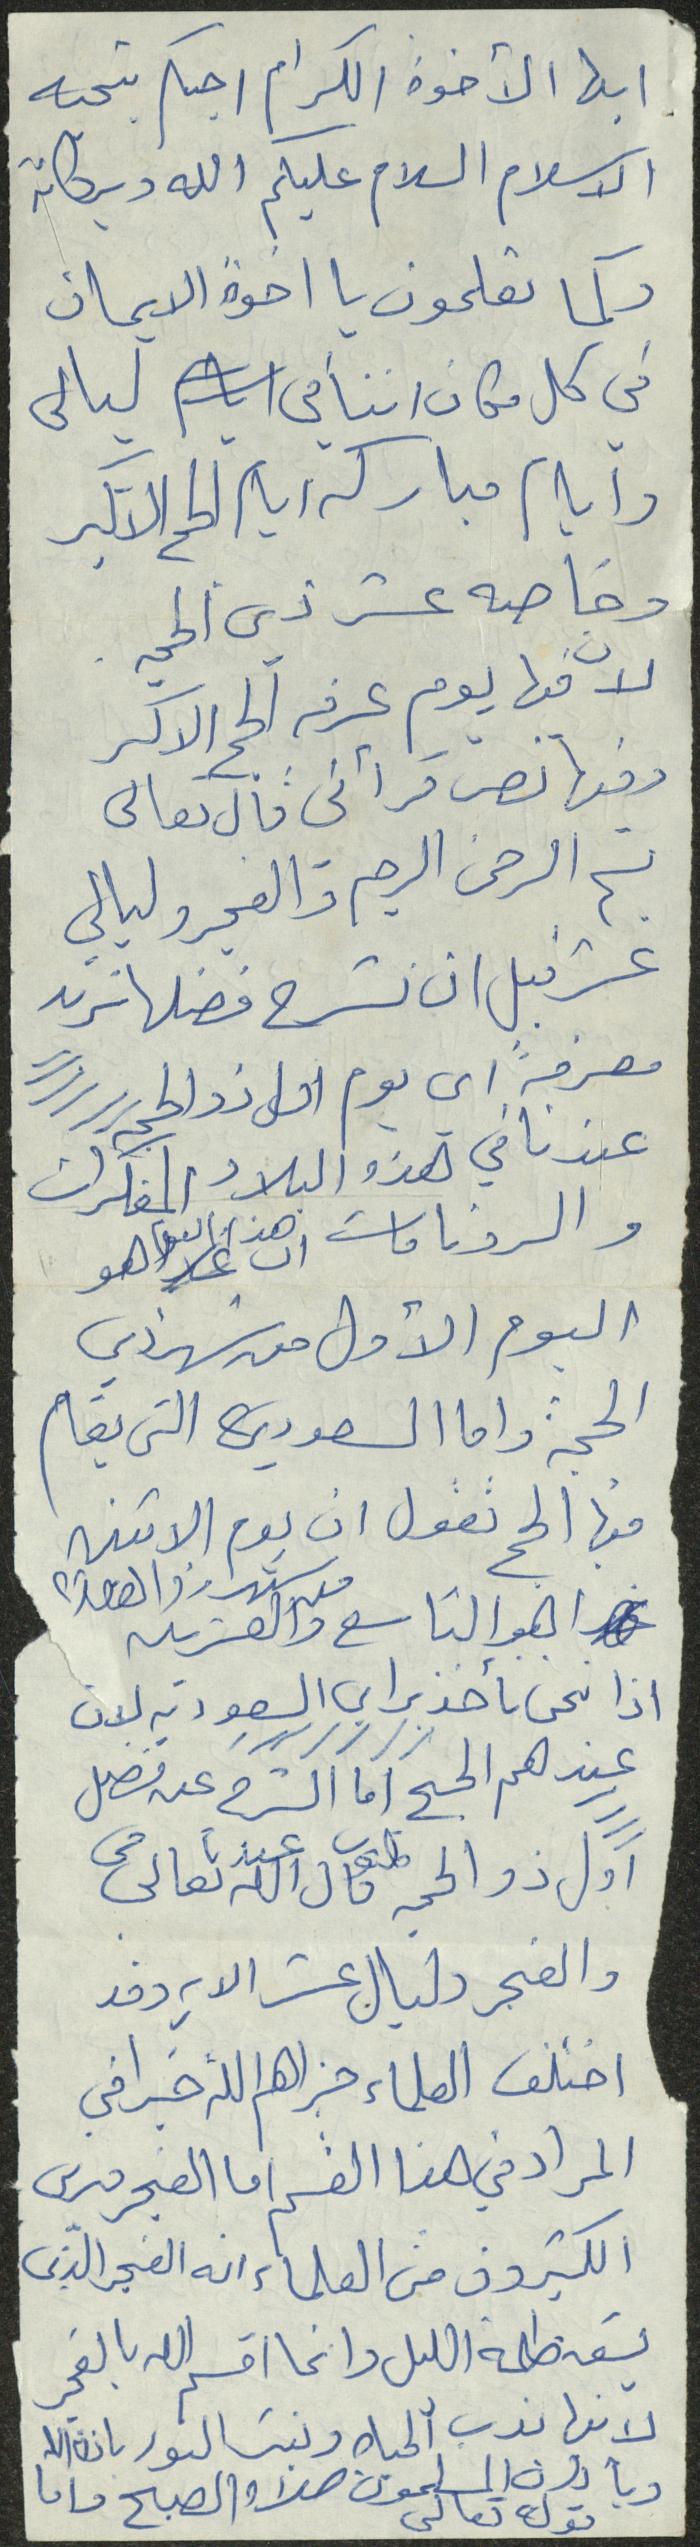 ايها الأخوة الكرام احيكم بتحيه
الاسلام السلام عليكم الله وبركاته
وكما تعلمون يا اخوة الايمان
في كل مكان اننا في ايام ليالي
وأيام مباركه ايام الحج الأكبر
وخاصه عشر ذي الحجه
لأن فيها يوم عرفه الحج الاكبر
وفيها نص قرأني قال تعالى
بسم الرحمن الرحيم والفجر وليالي
عشر قبل ان نشرح فضلها نريد
معرفة اي يوم اول ذو الحجه
عندنا في هذه البلاد المفكرات
والروزنامات ان هذا اليوم هو
اليوم الأول من شهر ذي
الحجة واما السعودية التي يقام
فيها الحج تقول ان يوم الاثنين
هو التاسع والعشرين من شهر ذو القعدة
اذا نحن نأخذ براي السعوديه لان
عندهم الحج أما الشرح عن فضل
أول ذو الحجه قال الله تعالى في
والفجر وليال عشر الايه وقد
اختلف العلماء جزاهم الله خيرا في
المراد في هذا القسم اما الفجر فيرى
الكثيرون من العلماء انه الفجر الذي
يشق ظلمة الليل وانما اقسم الله بالفجر
لانها تدب الحياه وينبثق النور باذن الله
ويأذن المسلمون صلاة الصبح واما
قوله تعالى